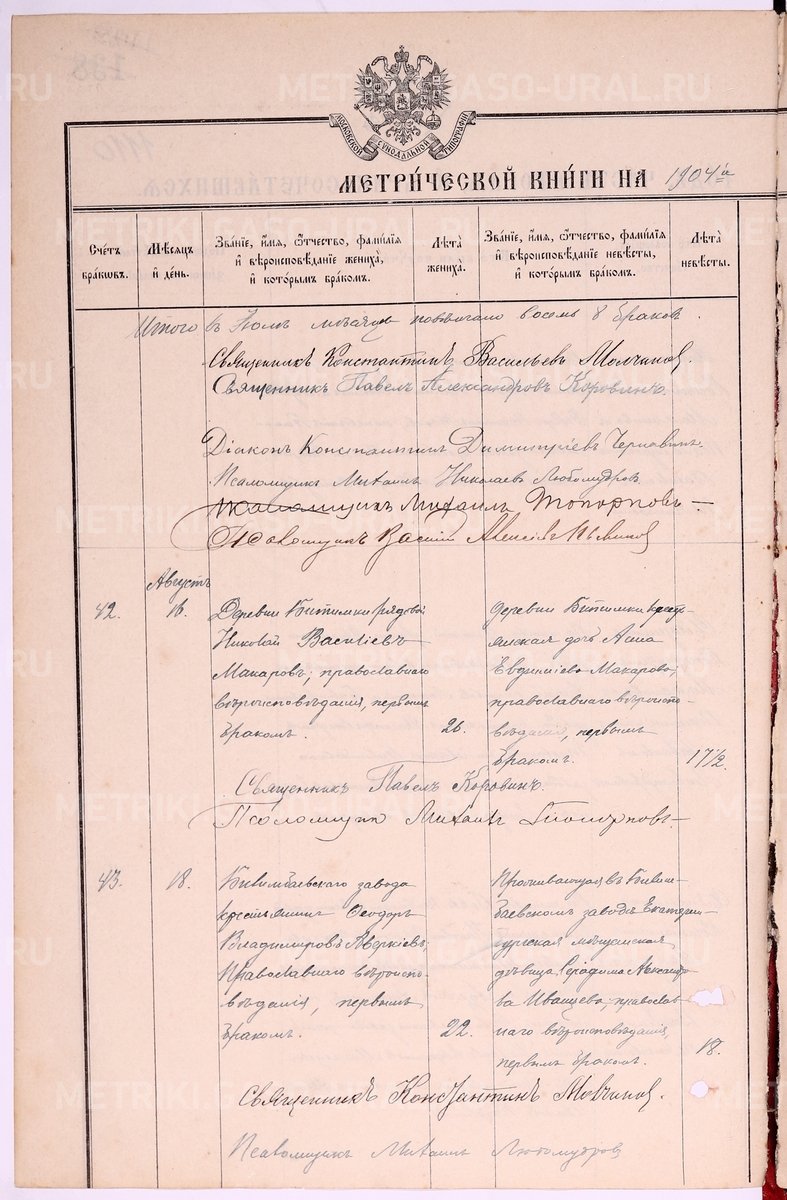 138
METRIKI.GASO-URAL.RU
МОСКОВСКОЙ СИНОДАЛЬНОЙ ТИПОГРАФІИ
МЕТРИ́ЧЕСКОЙ КНИ́ГИ НА 1904 й
Сче́тъ бра́кѡвъ.
Мѣ́сяцъ и҆ де́нь.
Зва́нїе, и҆́мя, ѻ҆́тчество, фамѝлїя и҆ вѣроисповѣ́данїе жениха̀, и҆ кото́рымъ бра́комъ.
Лѣта̀ жениха̀.
Зва́нїе, и҆́мя, ѻ҆́тчество, фамѝлїя и҆ вѣроисповѣ́данїе невѣ́сты, и҆ кото́рымъ бра́комъ.
Лѣта̀ невѣ́сты.
Итого въ Іюлѣ мѣсяцѣ повѣнчано восемь 8 браков
Священникъ Константинъ Васильевъ Молчанов.
Священникъ Павелъ Александровъ Коровинъ.
Діаконъ Константинъ Димитріевъ Чернавинъ.
Псаломщикъ Михаилъ Николаевъ Любомудров
Псаломщикъ Михаилъ Топорковъ
Псаломщикъ Василій Алексѣевъ
Августъ
42.
16.
Деревни Битимки рядовой
Николай Василіевъ
Макаровъ, православнаго
вѣроисповѣданія, первымъ
бракомъ.
26.
деревни Битимки кресть-
янская дочь Анна
Евдокиміева Макарова,
православнаго вѣроиспо-
вѣданія, первымъ
бракомъ.
17 1/2.
Священникъ Павелъ Коровинъ.
Псаломщикъ Михаилъ Топорковъ
43.
18.
Билимбаевскаго завода
крестьянинъ Ѳеодоръ
Владимировъ Аверкіевъ,
Православнаго вѣроиспо-
вѣданія, первымъ
бракомъ.
22.
Проживающая въ Билим-
баевскомъ заводѣ Екатерин-
бургская мѣщанская
дѣвица Серафима Александро-
ва Иванцева, православ-
наго вѣроисповѣданія,
первымъ бракомъ.
18.
Священникъ Константинъ Молчанов.
Псаломщикъ Михаилъ Любомудров